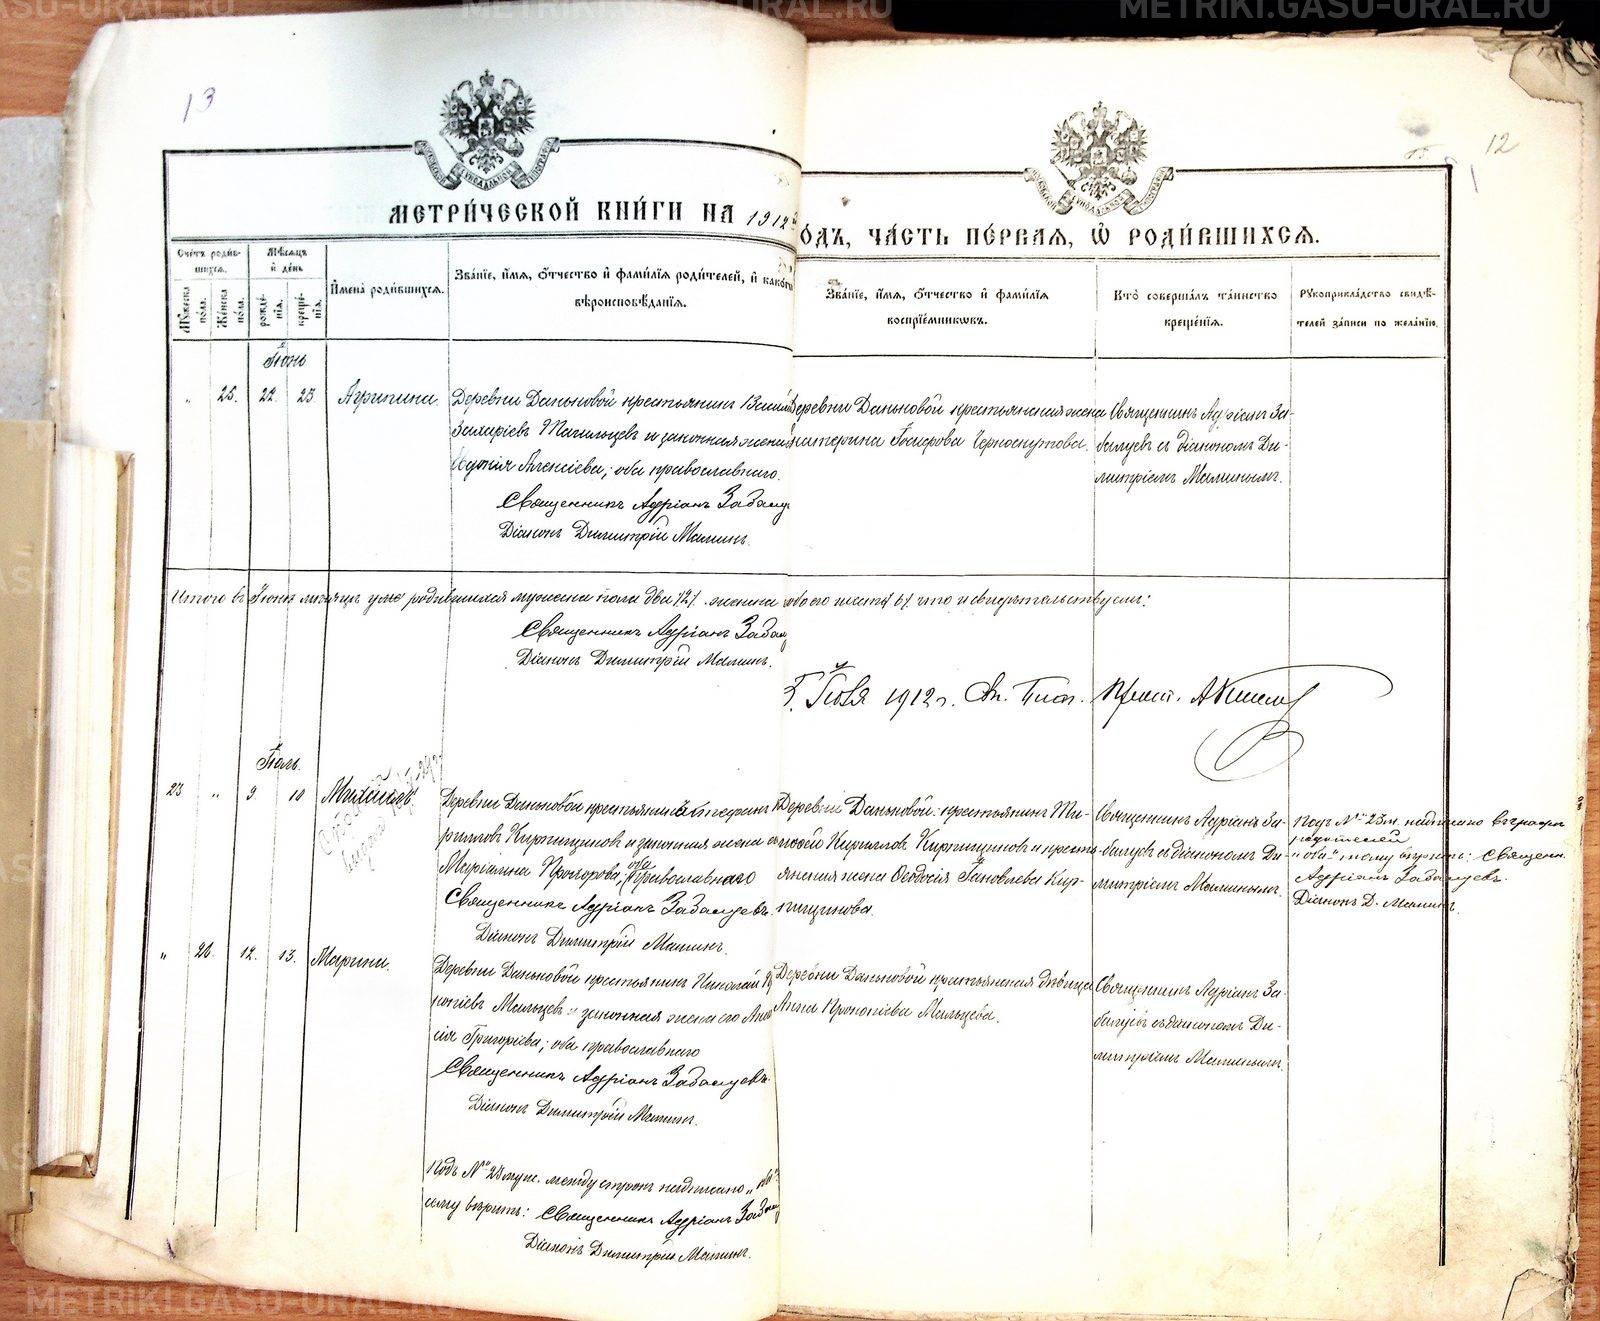 METRIKI.GASU-URAL.RU
METRIKI.GASU-URAL.RU
13
12
МЕТРИ́ЧЕСКОЙ КНИ́ГИ НА 1912
ОДЪ, ЧА́СТЬ ПЕ́РВАЯ, Ѽ РОДИ́ВШИХСѦ.
Сче́тъ роди́в-
шихсѧ.
Мꙋ́жеска
по́ла.
Же́нска
по́ла.
Мѣ́сѧцъ
и҆ де́нь
рожде́-
нїѧ.
креще́-
нїѧ.
И҆мена̀ роди́вшихсѧ.
Зва́нїе, и҆́мѧ, ѻ҆́тчество и҆ фами́лїѧ роди́телей, и҆ како́гѡ
вѣроисповѣ́данїѧ.
Зва́нїе, и҆́мѧ, ѻ҆́тчество и҆ фами́лїѧ
воспрїе́мникѡвъ.
Кто̀ соверша́лъ та́инство
креще́нїѧ.
Рꙋкоприкла́дство свидѣ́-
телей за́писи по жела́нїю.
Іюнь
„ 25. 22. 23 Агрипина.
Деревни Даньковой крестьянинъ
Захаріевъ Тагильцевъ и законная жена
Алексіева; оба православнаго.
Священникъ Адріанъ
Діаконъ Димитрій Мамин.
Деревни Даньковой крестьянская жена
Іосифова Черноскутова.
Священникъ Адріанъ За-
балуевъ съ діакономъ Ди-
митріемъ Маминымъ.
Итого въ Іюнѣ мѣсяцѣ родившихся мужеска пола два /2/. женска обоего шесть /6/ что и свидѣтельствуемъ:
Священникъ Адріанъ
Діаконъ Димитрій Мамин.
Іюля 1912 г.
Іюль.
23 „ 9 10 Михаилъ.
Деревни Даньковой крестьянинъ Стефанъ Ки-
рилловъ Кирпищиковъ и законная жена его
Маріамна Прохорова; оба православнаго
Священникъ Адріанъ Забалуевъ.
Діаконъ Димитрій Мамин.
Деревни Даньковой крестьянинъ Ти-
мофей Кирилловъ Кирпищиковъ и кресть-
янская жена Ѳеодосія Іаковлева Кир-
пищикова.
Священникъ Адріанъ За-
балуевъ съ діакономъ Ди-
митріемъ Маминымъ.
Подъ № 23 м. надписано въ графѣ
родителей
„оба" тому вѣрить: Священ.
Адріанъ Забалуевъ.
Діаконъ Д. Мамин.
„ 26. 12. 13. Марина.
Деревни Даньковой крестьянинъ Николай
Мальцевъ и законная жена его
Григоріева; оба православнаго
Священникъ Адріанъ Забалуевъ.
Діаконъ Димитрій Мамин.
Деревни Даньковой крестьянская дѣвица
Анна Прокопіева Мальцева.
Священникъ Адріанъ За-
балуевъ съ діакономъ Ди-
митріемъ Маминымъ.
Подъ № 23 муж. между строкъ надписано „оба"
сему вѣрить: Священникъ Адріанъ
Діаконъ Димитрій Мамин.
METRIKI.GASU-URAL.RU
METRIKI.GASU-URAL.RU